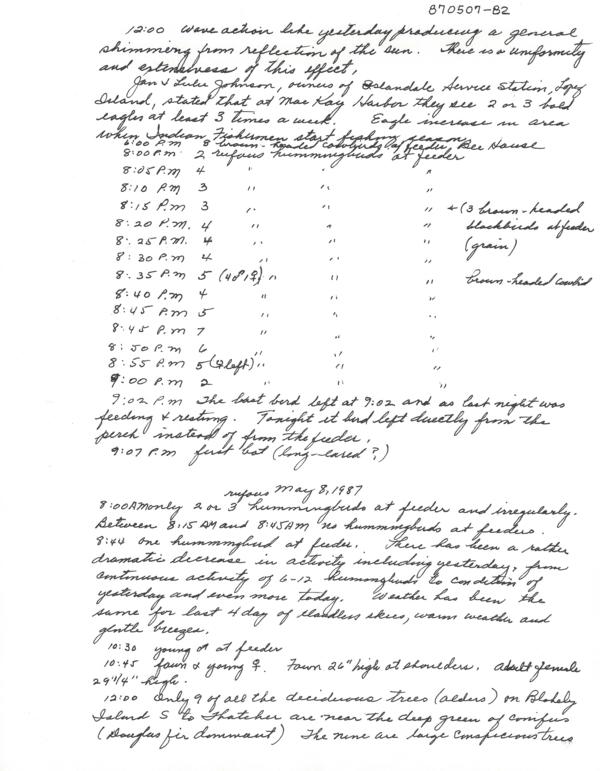 870507-B2
12:00 Wave action like yesterday producing a general
shimmering from reflection of the sun. There is a uniformity
and extensiveness of this effect,
Jan & Lulu Johnson, owners of Islandale Service Station, Lopez
Island, stated that at Mac Kay Harbor they see 2 or 3 bald
eagles at least 3 times a week. Eagle increase in area
when Indian Fishermen start fishing season.
6:00 P.m 8 brown-headed cowbirds at feeder, Bee House
8:00 P.m. 2 rufous hummingbirds at feeder
8:05 P.m 4 " " "
8:10 P.m 3 " " "
8:15 P.m 3 " " " + (3 brown-headed
8:20 P.m. 4 " " " blackbirds at feeder
8:25 P.M. 4 " " " (grain)
8:30 P.m 4 " " "
8:35 P.m 5 (4♂1♀) " " " brown-headed cowbird
8:40 P.m 4 " " "
8:45 P.m 5 " " "
8:45 P.m 7 " " "
8:50 P.m 6 " " "
8:55 P.m 5 (♀left) " " "
9:00 P.m 2 " " "
9:02 P.m The last bird left at 9:02 and as last night was
feeding & resting. Tonight it bird left directly from the
perch instead of from the feeder.
9:07 P.m first bat (long-eared?)
May 8, 1987
rufous
8:00AM only 2 or 3 hummingbirds at feeder and irregularly.
Between 8:15 AM and 8:45AM no hummingbirds at feeders.
8:44 one hummingbird at feeder. There has been a rather
dramatic decrease in activity including yesterday, from
continuous activity of 6-12 hummingbirds to condition of
yesterday and even more today. Weather has been the
same for last 4 day of cloudless skies, warm weather and
gentle breezes.
10:30 young ♂ at feeder
10:45 fawn & young ♀. Fawn 26" high at shoulders. adult female
29 1/4" high.
12:00 Only 9 of all the deciduous trees (alders) on Blakely
Island S to Thatcher are near the deep green of conifers
(Douglas fir dominant) The nine are large conspicious trees